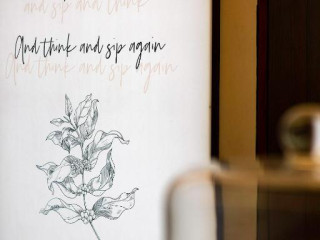 and sip and think
And think and sip again
And think and sip again